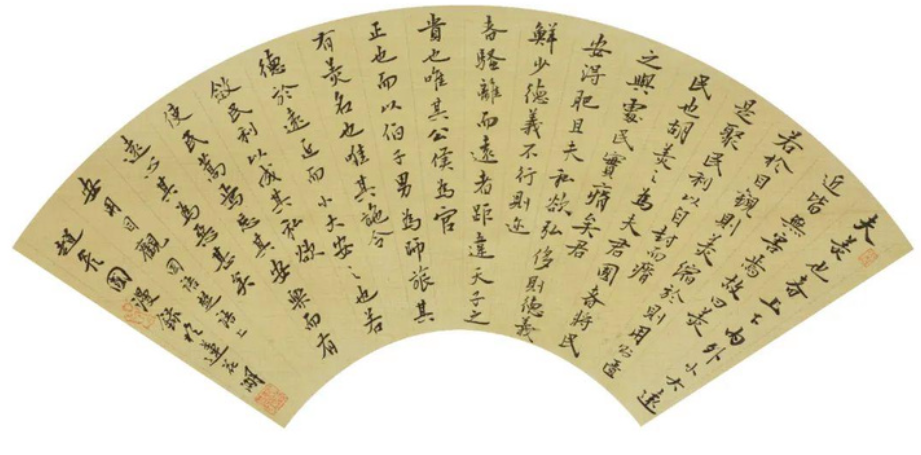 夫美也者上下內外小大遠
近皆無害焉故曰美
若於目觀則美縮於財用則匱
是聚民利以自封而瘠
民也胡美之為夫君國者將民
之與處民實瘠矣君
安得肥且夫私欲弘侈則德義
鮮少德義不行則迩
者騷離而遠者距違天子之
貴也唯其公侯為官
正也而以伯子男為師旅其
有美名也唯其施令
德於遠近而小大安之也若
斂民利以成其私欲
使民蒿焉忘其安樂而有
遠心其為惡甚矣
安用目觀 國語楚語上
趙 國漫錄於蓮花